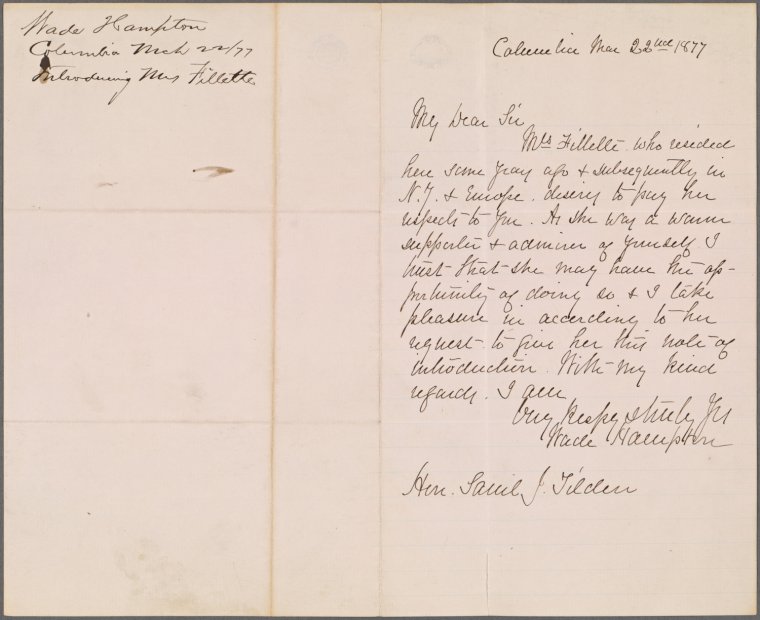 Wade Hampton
Columbia Mch 22/77
Introducing Mrs Fillette
Columbia Mar 22nd 1877
My Dear Sir
Mrs Fillette who resided
here some years ago & subsequently in
N.Y. & Europe. desires to pay her
respects to you. As she was a warm
supporter & admirer of yourself I
trust that she may have the op-
portunity of doing so & I take
pleasure in according to her
request to give her this note of
introduction. With my kind
regards. I am
Very Respy & truly Yrs
Wade Hampton
Hon. Saml J. Tilden